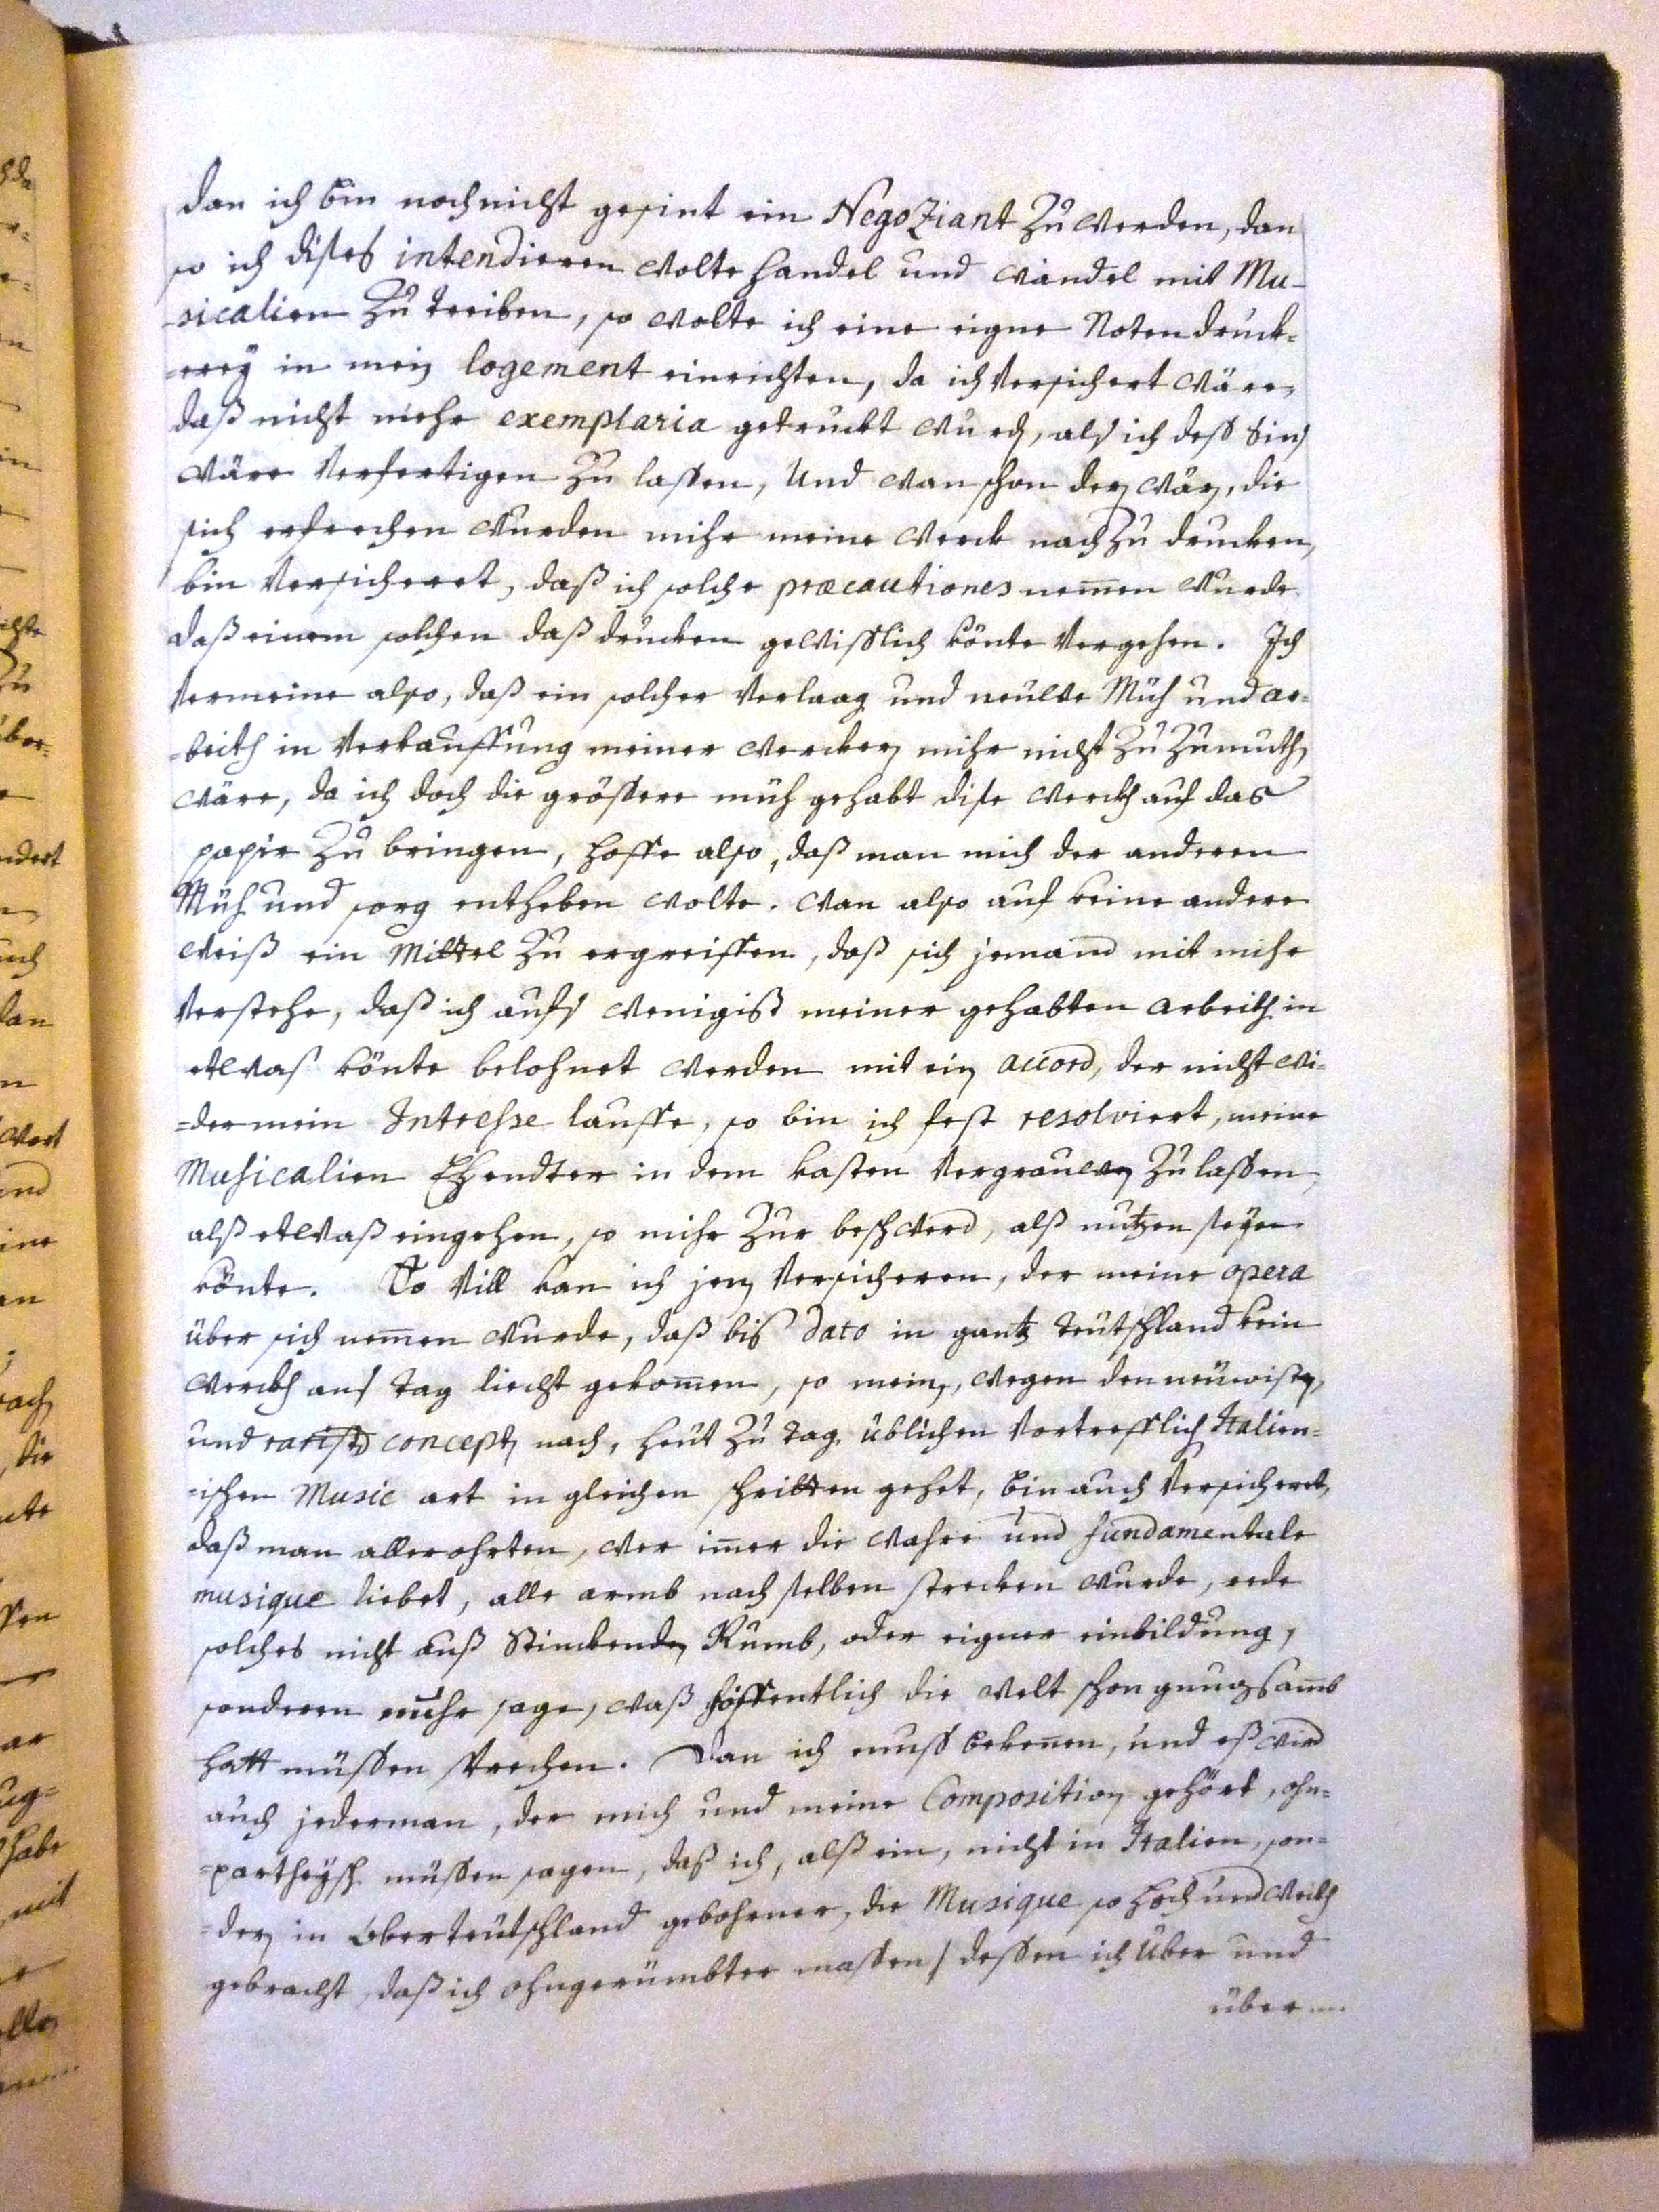 dan ich bin noch nicht gesint ein Negoziant zu werden, dan
so ich dises intendieren wolte handel und wandel mit Mu-
-sicalien zu treiben, so wolte ich eine eigne Noten druck=
=erey in mein logement einrichten, da ich versichert wäre,
daß nicht mehr exemplaria getruckt wurden, als ich deß Sins
wäre verfertigen zu lassen, und wan schon deren wären, die
sich erfrechen wurden mihr meine werck nachzu drucken,
bin versicheret, daß ich solche præcautiones nem̄en wurde
daß einem solchen daß drucken gewisslich könte vergehen. Ich
vermeine also, daß ein solcher verlaag und neuwe Müh und ar=
=beith in verkauffung meiner wercken mihr nicht zu zumuthen
wäre, da ich doch die grössere müh gehabt dise werckh auf das
papir zu bringen, hoffe also, daß man mich der anderen
Müh und sorg entheben wolte. wan also auf keine andere
weiß ein Mittel zu ergreiffen, daß sich jemand mit mihr
verstehe, daß ich aufs wenigist meiner gehabten arbeith in
etwas könte belohnet werden mit ein accord, der nicht wi=
=der mein Intresse lauffe, so bin ich fest resolviert, meine
Musicalien Ehendter in dem kasten vergrauen zu lassen,
alß etwaß eingehen, so mihr zur beschwerd, alß nutzen seyn
könte. So vill kan ich jenen versicheren, der meine opera
über sich nem̄en wurde, daß bis dato in gantz teutschland kein
werckh ans tag liecht gekom̄en, so meinen, wegen den neuwisten,
und raristen concepten nach, heut zu tag üblichen vortrefflich Italien=
=ischen Music art in gleichen schritten gehet, bin auch versicheret,
daß man aller ohrten, wer im̄er die wahre und fundamentale
musique liebet, alle armb nach selben strecken wurde, rede
solches nicht auß Stinckenden Rumb, oder eigner einbildung,
sonderen mehr sage, waß hoffentlich die welt schon gnugsamb
hatt müssen sprechen. Dan ich muss bekenen, und eß wird
auch jederman, der mich und meine Composition gehört, ohn=
=partheysch müssen sagen, daß ich, alß ein, nicht in Italien, son=
=dern in oberteutschland gebohrner, die Musique so hoch und weith
gebracht, daß ich ohngerümbter massen / dessen ich über und
über